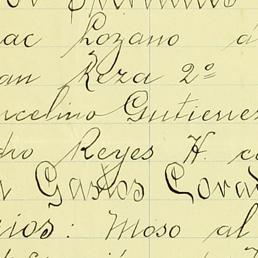 ac Lozano d
an Reza 2º
ncelino Gutierres
dro Reyes H. co
Gastos Corat
rios: Moso al